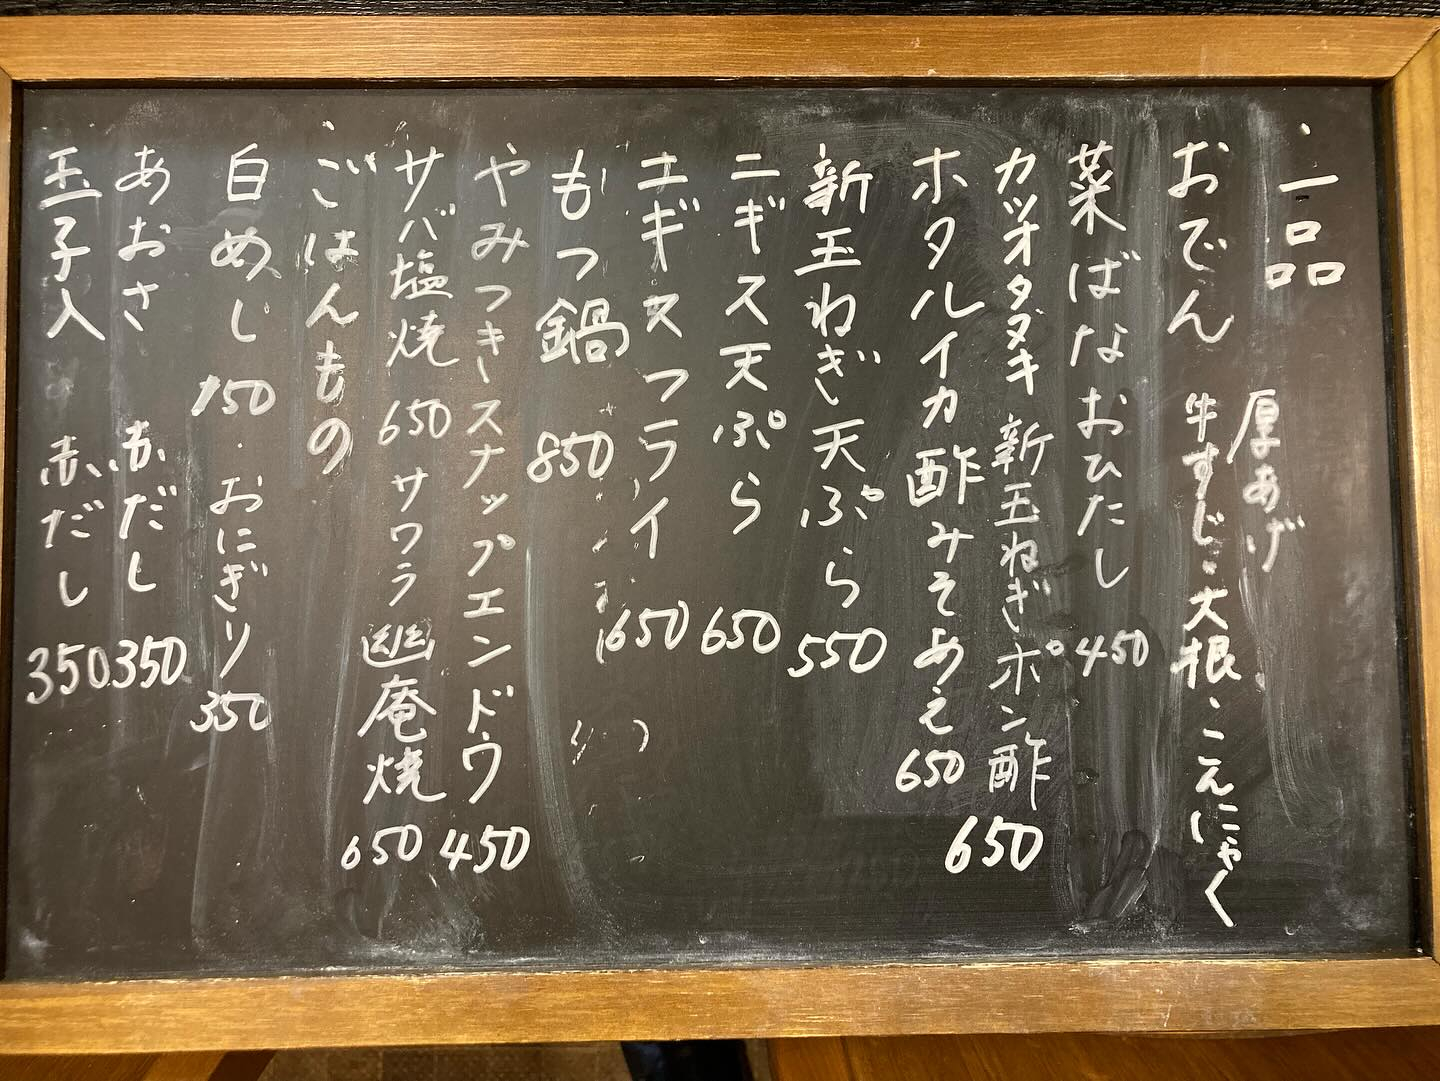 ・一品
おでん 厚あげ
牛すじ・大根・こんにゃく
菜ばなおひたし 450
カツオタタキ 新玉ねぎポン酢 650
ホタルイカ酢みそあえ 650
新玉ねぎ天ぷら 550
ニギス天ぷら 650
エギスフライ 650
もつ鍋 850
やみつきスナップエンドウ 450
サバ塩焼 650 サワラ幽庵焼 650
ごはんもの
白めし 150・おにぎり 350
あおさ 赤だし 350
玉子入 赤だし 350